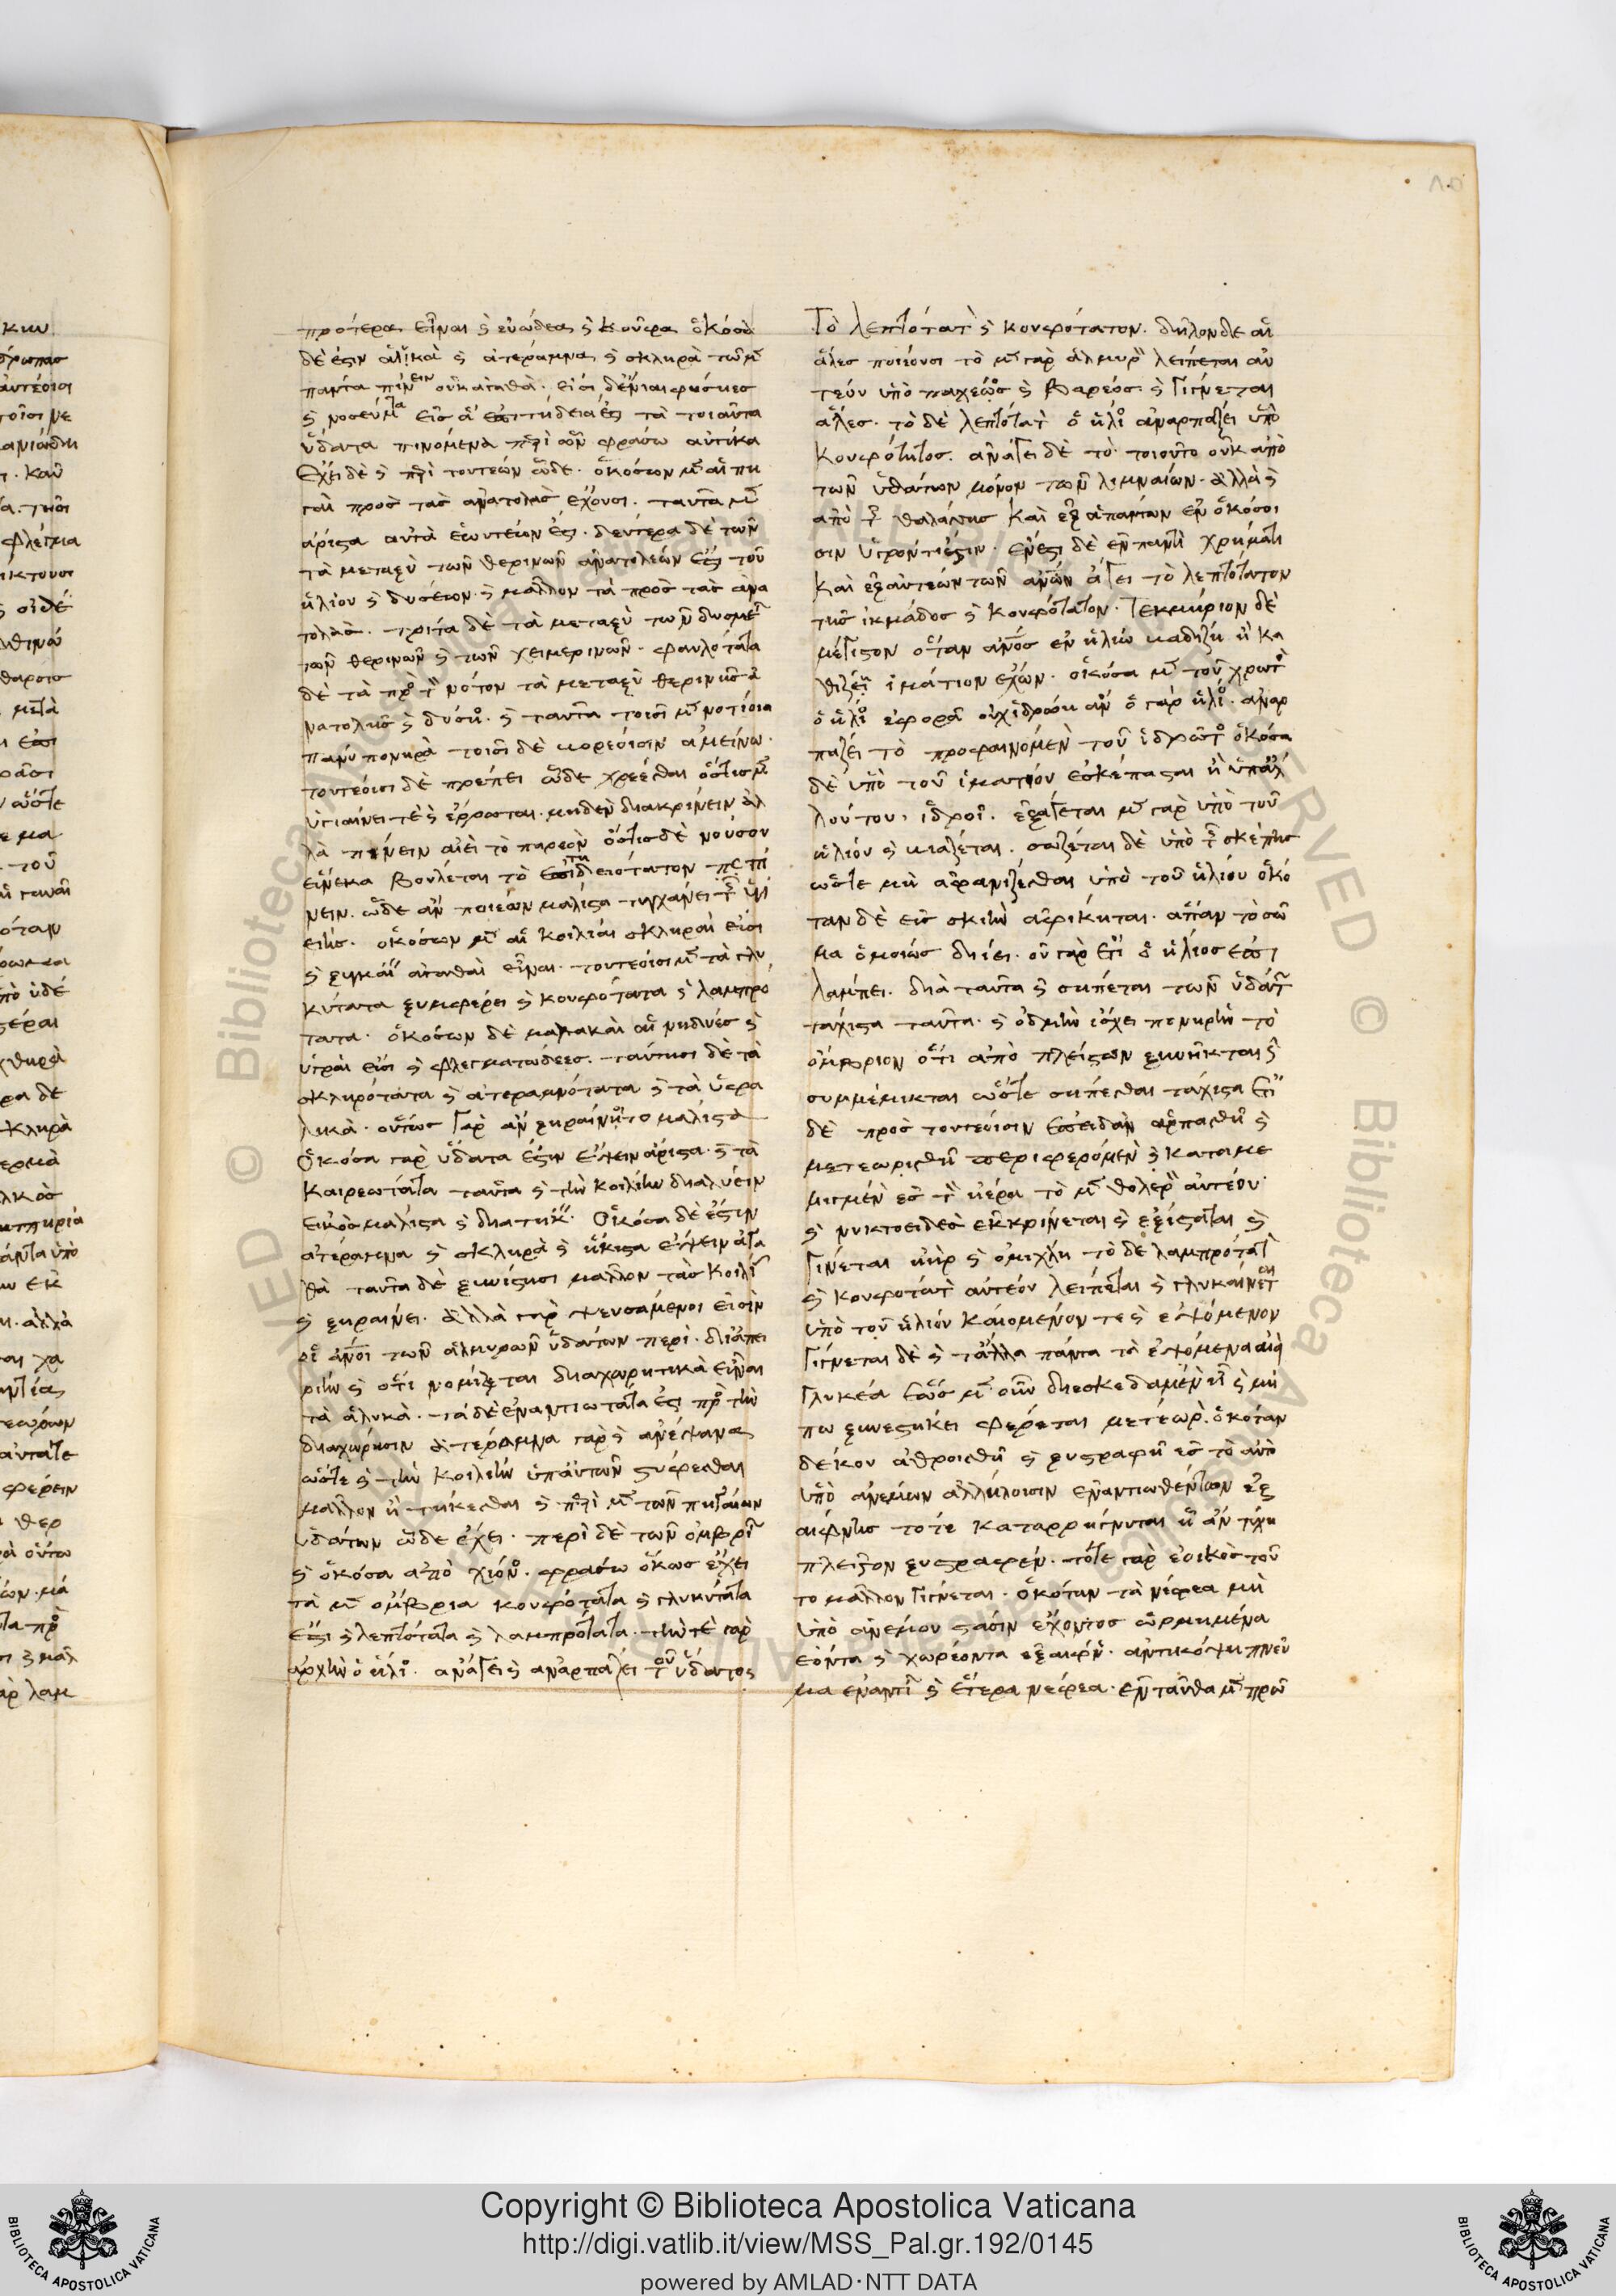 πρότερα εἶναι ϗ εὐώδεα ϗ κοῦφα ὁκόσα
δὲ ἐστιν ἁλϊκὰ ϗ ἀτέραμνα ϗ σκληρὰ τῶ μ̅
πάντα πίνειν οὐκ ἀγαθὰ. εἰσὶ δ' ἔνιαι φύσιες
ϗ νοσεύμτα εἰς ἃ ἐπιτήδεια ἐς τὰ τοιαῦτα
ὕδατα πινόμενα πρὶ ὧν φράσω αὐτίκα
Ἔχει δὲ ϗ πρὶ τουτέων ὧδε. ὁκόσων μ̅ αἱ πη
γαὶ πρὸς τὰς ἀνατολὰς ἔχουσι. ταῦτα μ̅
ἄριστα αὐτὰ ἑωυτέων ἐστι. δεύτερα δὲ τῶν
τὰ μεταξὺ τῶν θερινῶν ἀνατολέων ἐστὶ τοῦ
ἡλίου ϗ δυσέων. ϗ μᾶλλον τὰ πρὸς τὰς ἀνα
τολὰς. τρίτα δὲ τὰ μεταξὺ τῶν δυσμέ
τῶν θερινῶν ϗ τῶν χειμερινῶν. φαυλότατα
δὲ τὰ πρὸ τ̀ νότον τὰ μεταξὺ θερινῆς ἀ
νατολῆς ϗ δύσιο. ϗ ταῦτα τοῖσι μ̅ νοτίοισι
πάνυ πονηρὰ τοῖσι δὲ βορείοισιν ἀμείνω.
τουτέοισι δὲ πρέπει ὧδε χρέεσθαι ὅστις μ̅
ὑγιαίνει τὲ ϗ ἔρρωται. μηδὲν διακρίνειν ἀλ
λὰ πίνειν αἰεὶ τὸ παρεὸν ὅστις δὲ νούσου
εἵνεκα βούλεται τὸ ἐπιτηδειότατον πί
νειν. ὧδε ἂν ποιέων μάλιστα τυγχάνει τ̅ ὑγι
είης. ὁκόσων μ̅ αἱ κοιλίαι σκληραὶ εἰσι
ϗ ξυγκαί ἀγαθαὶ εἶναι. τουτέοισι μ̅ τὰ γλυ
κύτατα ξυμφέρει ϗ κουφότατα ϗ λαμπρό
τατα. ὁκόσων δὲ μαλακαὶ αἱ νηδύες ϗ
ὑγραὶ εἰσι ϗ φλεγματώδεες. ταύτησι δὲ τὰ
σκληρότατα ϗ ἀτεραμνότατα ϗ τὰ ὑφα
λικὰ. οὕτως γὰρ ἂν ξηραίνοιτο μάλιστα
Ὁκόσα γὰρ ὕδατα ἐστιν ἕψειν ἄριστα. ϗ τὰ
καιρεωτάτα ταῦτα ϗ τὴν κοιλίην διαλύειν
εἰκὸς μάλιστα ϗ διατήκ. Ὁκόσα δὲ ἐστιν
ἀτέραμνα ϗ σκληρὰ ϗ ἥκιστα ἕψειν ἀγα
θὰ ταῦτα δὲ ξυνίστησι μᾶλλον τὰς κοιλί
ϗ ξηραίνει. ἀλλὰ γὰρ ψευσάμενοι εἰσὶν
οἱ ἄνοι τῶν ἁλμυρῶν ὑδάτων περὶ. δι' ἀπει
ρίην ϗ ὅτι νομίζεται διαχωρητικὰ εἶναι
τὰ ἁλυκὰ. τὰ δὲ ἐναντιωτάτα ἐστι πρὸ τὴν
διαχώρησιν ἀτέραμνα γὰρ ϗ ἀνέψανα
ὥστε ϗ τὴν κοιλίην ὑπ' αὐτῶν στύφεσθαι
μᾶλλον ἢ τήκεσθαι ϗ πρὶ μ̅ τῶν πηγαίων
ὑδάτων ὧδε ἔχει. περὶ δὲ τῶν ὀμβρί
ϗ ὁκόσα ἀπὸ χιόνο. φράσω ὅκως ἔχει
τὰ μ̅ ὄμβρια κουφότατα ϗ γλυκύτατα
ἐστι ϗ λεπτότατα ϗ λαμπρότατα. τήν τὲ γὰρ
ἀρχὴν ὁ ἥλιο. ἀνάγει ϗ ἀναρπάζει τοῦ ὕδατος
Τὸ λεπτότατ̀ ϗ κουφότατον. δῆλον δὲ οἱ
ἅλες ποιέουσι τὸ μ̅ γὰρ ἁλμυρ̀ λείπεται αὐ
τεύν ὑπὸ παχέως ϗ βαρέος. ϗ γίγνεται
ἅλες. τὸ δὲ λεπτότατ̀ ὁ ἥλιο ἀναρπάζει ὑπὸ
κουφότητος. ἀνάγει δὲ τὸ τοιοῦτο οὐκ ἀπὸ
τῶν ὑδάτων μόνον τῶν λιμναίων. ἀλλὰ ϗ
ἀπὸ τ̅ θαλάσσης καὶ ἐξ ἁπάντων ἐν ὁκόσοι
σιν ὑγρόν τι ἐστιν. ἔνεστι δὲ ἐν παντὶ χρήματι
καὶ ἐξ αὐτέων τῶν ἀνων ἄγει τὸ λεπτότατον
τῆς ἰκμάδος ϗ κουφότατον. Τεκμήριον δὲ
μέγιστον ὅταν ἄνος ἐν ἡλίω καθίζη ἢ κα
θίζει ἱμάτιον ἔχων. ὁκόσα μ̅ τοῦ χρωτὸ
ὁ ἥλιο ἐφορᾶ οὐχ ἱδρώη ἂν ὁ γὰρ ἥλιο. ἀναρ
πάζει τὸ προφαινόμεν̀ τοῦ ἱδρῶτο ὁκόσα
δὲ ὑπὸ τοῦ ἱματίου ἐσκέπασται ἢ ὑπ' ἄλ
λου του, ἱδροῖ. ἐξάγεται μ̅ γὰρ ὑπὸ τοῦ
ἡλίου ϗ βιάζεται. σώζεται δὲ ὑπὸ τ̅ σκέπης
ὥστε μὴ ἀφανίζεσθαι ὑπὸ τοῦ ἡλίου ὁκό
ταν δὲ εἰς σκιὴν ἀφίκηται. ἅπαν τὸ σῶ
μα ὁμοίως διίει. οὐ γὰρ ἔτι ὁ ἥλιος ἐπι
λάμπει. διὰ ταῦτα ϗ σήπεται τῶν ὑδάτ̅
τάχιστα ταῦτα. ϗ ὀδμὴν ἴσχει πονηρὴν τὸ
ὄμβριον ὅτι ἀπὸ πλείστων ξυνῆκται ϗ
συμμέμικται ὥστε σήπεσθαι τάχιστα ἔτι
δὲ πρὸς τουτέοισιν ἐπειδὰν ἁρπασθῆ ϗ
μετεωρισθῆ περιφερόμεν̀ ϗ καταμε
μιγμέν̀ ἐς τ̀ ἠέρα τὸ μ̅ θολερ̀ αὐτέου.
ϗ νυκτοειδὲς ἐκκρίνεται ϗ ἐξίσταται ϗ
γίνεται ἠὴρ ϗ ὀμίχλη τὸ δὲ λαμπρότατ̀
ϗ κουφότατ̀ αὐτέου λείπεται ϗ γλυκαίνεται
ὑπὸ τοῦ ἡλίου καιομένον τε ϗ ἑψόμενον
γίγνεται δὲ ϗ τἄλλα πάντα τὰ ἑψόμενα αἰεὶ
γλυκέα ἕως μ̅ οὖν διεσκεδαμέν̀ ἦ ϗ μή
πω ξυνεστήκει φέρεται μετέωρ̀. ὁκόταν
δέ κου ἀθροισθῆ ϗ ξυστραφῆ ἐς τὸ αὐτὸ
ὑπὸ ἀνέμων ἀλλήλοισιν ἐναντιωθέντων ἐξ
αίφνης τότε καταρρήγνυται ἧ ἂν τύχη
πλεῖστον ξυστραφέν. τότε γὰρ ἐοικὸς τοῦ
το μᾶλλον γίγνεται. ὁκόταν τὰ νέφεα μὴ
ὑπὸ ἀνέμου στάσιν ἔχοντος ὡρμημένα
ἐόντα ϗ χωρέοντα ἐξαίφν. ἀντικόψη πνεῦ
μα ἐναντί ϗ ἕτερα νέφεα. ἐνταῦθα μ̅ πρῶ
Copyright © Biblioteca Apostolica Vaticana
http://digi.vatlib.it/view/MSS_Pal.gr.192/0145
powered by AMLAD·NTT DATA